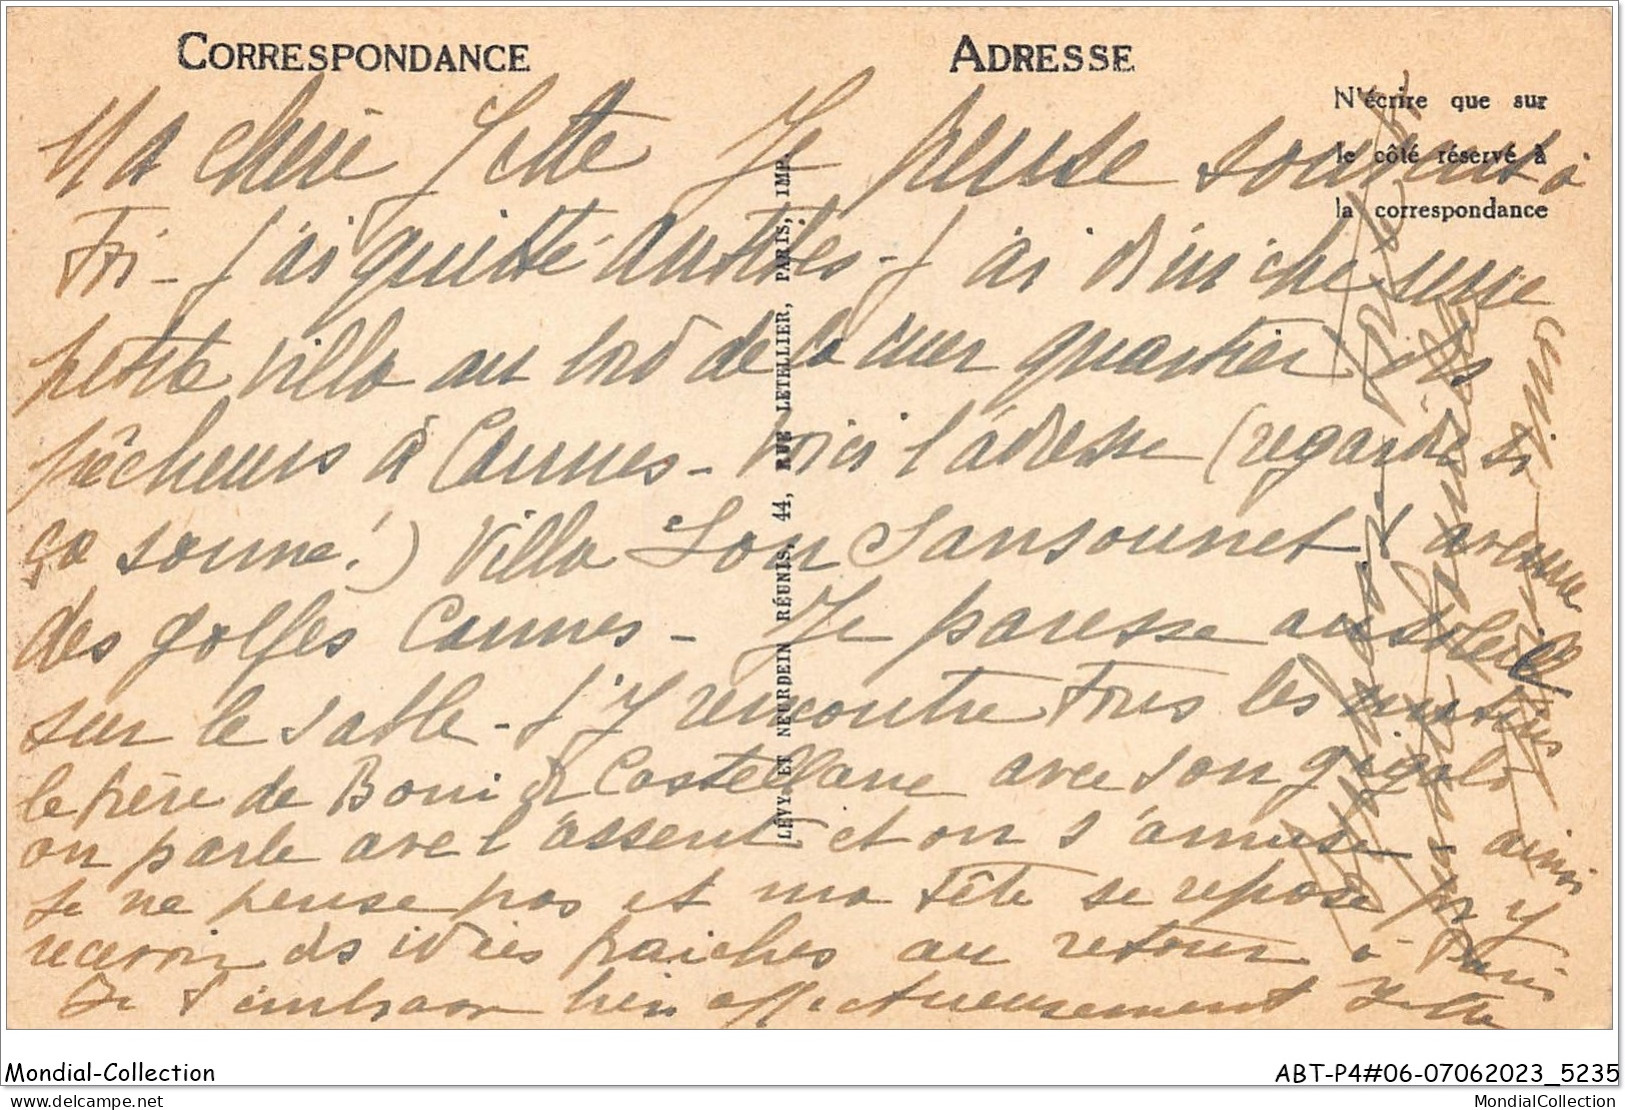 CORRESPONDANCE
ADRESSE
N'écrire que sur
le côté réservé à
la correspondance
Ma chère Yette Je pense souvent à
Toi - J'ai quitté Antibes - J'ai déniché une
petite villa au bord de la mer quartier des
pêcheurs à Cannes - Voici l'adresse (regarde si
ça sonne!) Villa Lou Sansounet avenue
des golfes Cannes - Je paresse au soleil
sur le sable - J'y rencontre Tous les
le frère de Boni de Castellane avec son gigolo
on parle avec l'assent et on s'amuse - ainsi
je ne pense pas et ma Tête se repose pr y
recevoir des idées fraiches au retour à Paris
Je t'embrasse bien affectueusement Yette
LÉVY ET NEURDEIN RÉUNIS, 44, RUE LETELLIER, PARIS, IMP.
Mondial-Collection
ABT-P4#06-07062023_5235
delcampe.net
MondialCollection